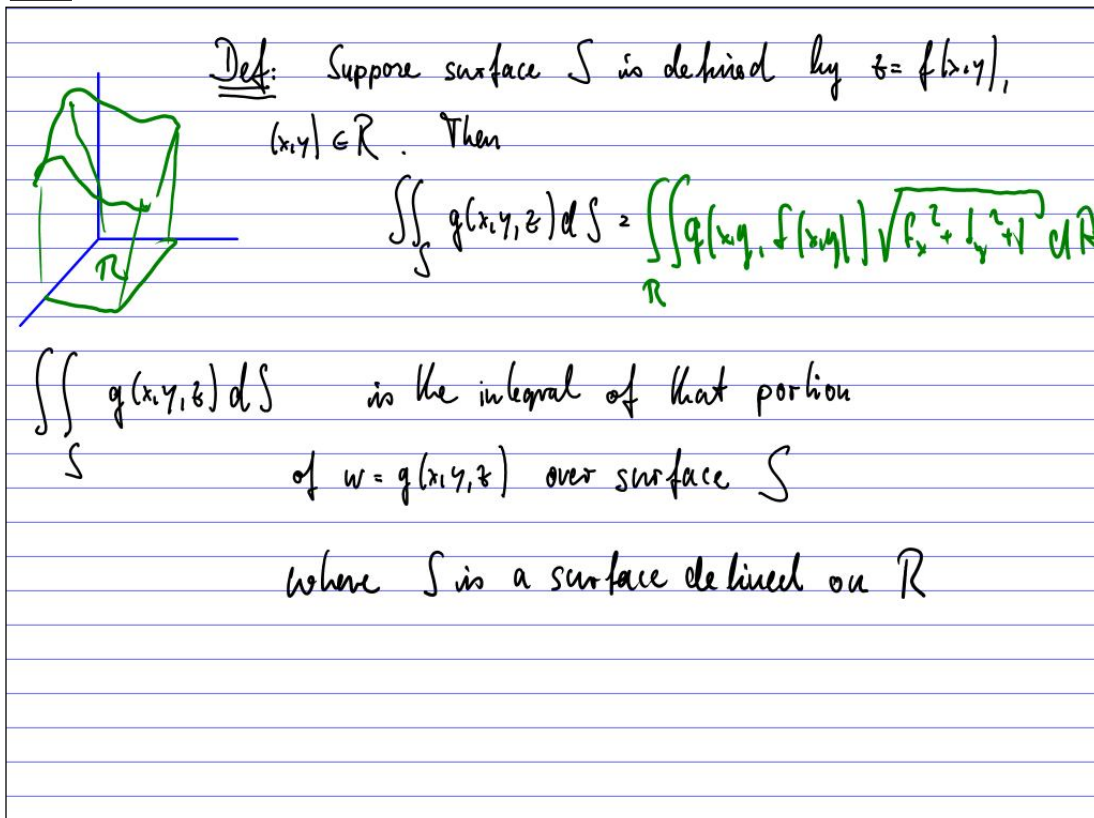 Def: Suppose surface S is defined by z = f(x,y),
(x,y) ∈ R. Then
∬_S g(x,y,z) dS = ∬_R g(x,y, f(x,y)) √(f_x² + f_y² + 1) dA
R
∬_S g(x,y,z) dS is the integral of that portion
of w = g(x,y,z) over surface S
where S is a surface defined on R